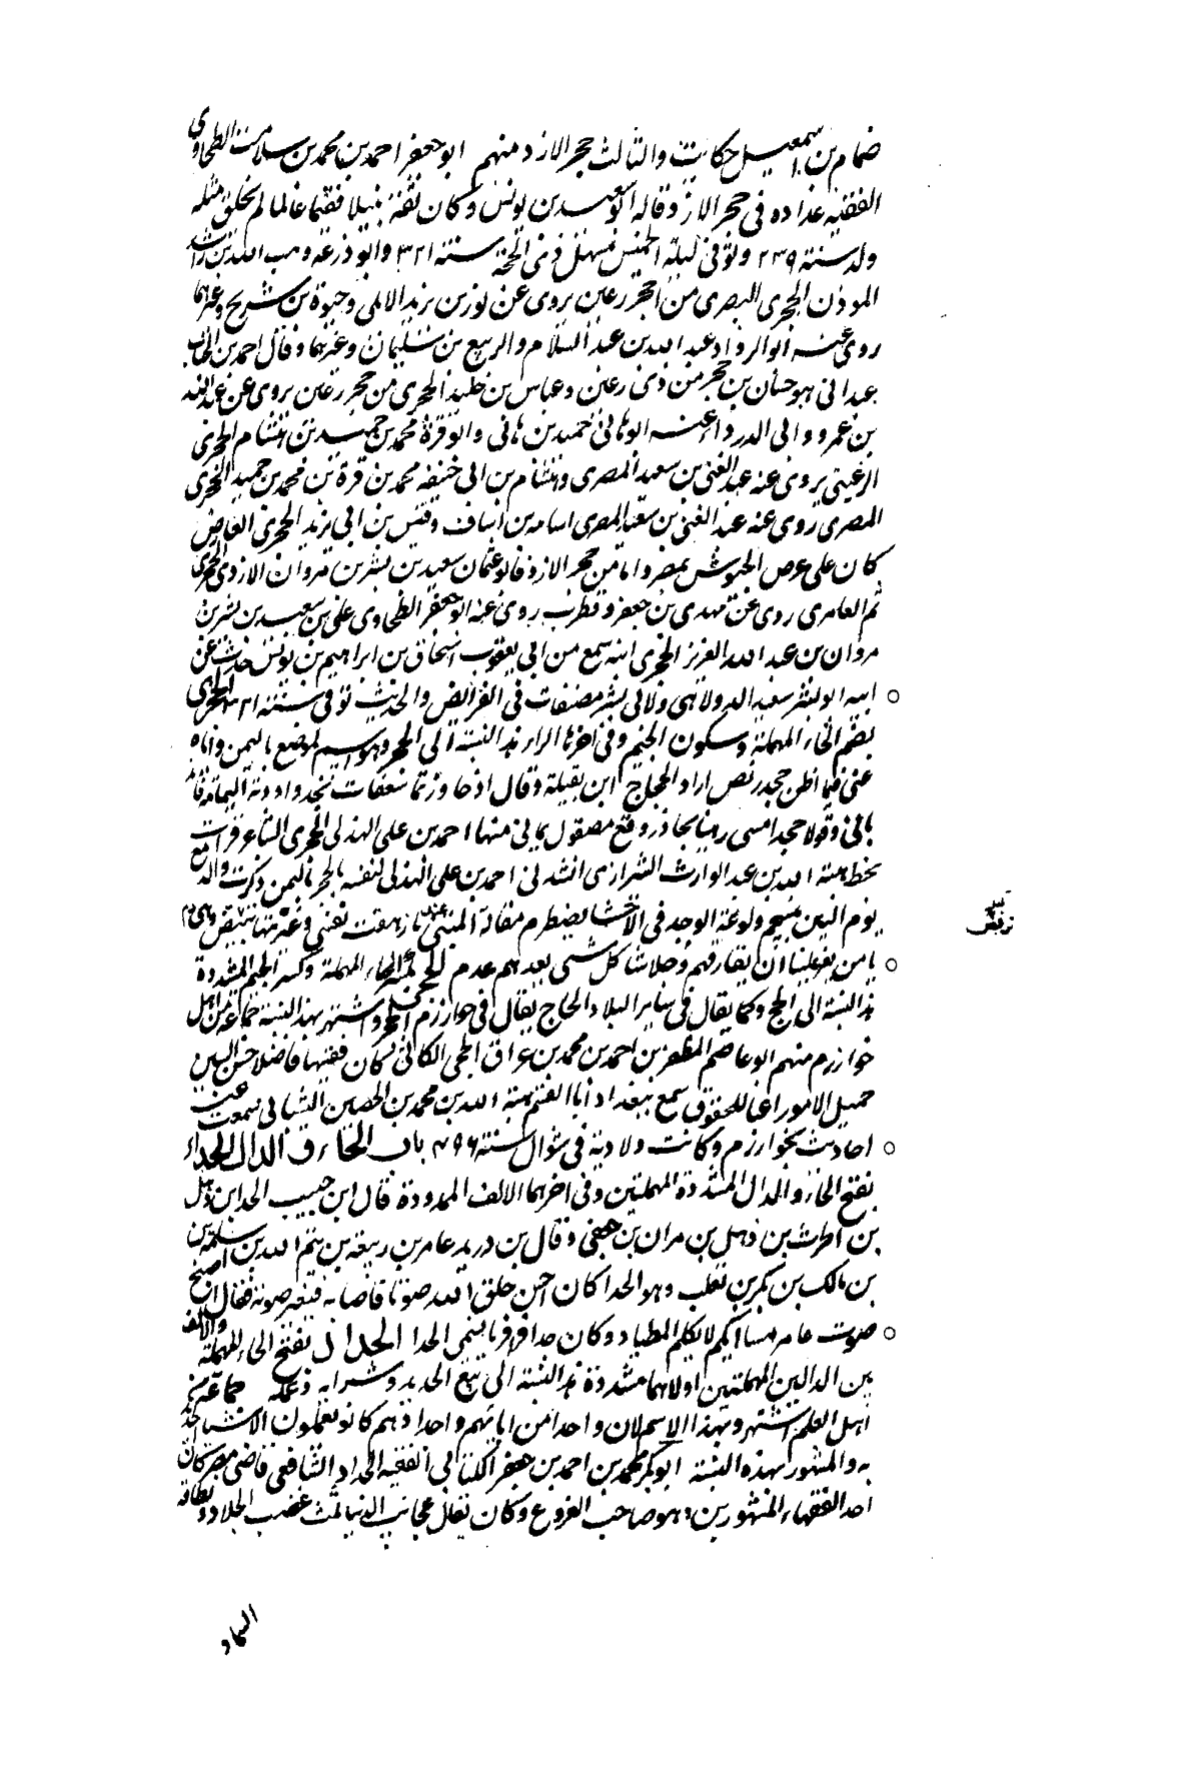 ضمام بن اسمعيل حكايت والثالث حجر الازد منهم ابو جعفر احمد بن محمد بن سلامت الطحاوي
الفقيه عداده في حجر الازد قاله ابو سعيد بن يونس وكان ثقة نبيلا فقيها عالما لم يخلق مثله
ولد سنة ٢٣٩ وتوفي ليلة الخميس مستهل ذي الحجة سنة ٣٢١ وابو ذرعه وهب الله بن راشد
الموذن الحجري البصري من حجر رعين يروي عن يونس بن يزيد الايلي وحيوة بن شريح وغيرهما
روى عنه ابو الرواد عبد الله بن عبد السلام والربيع بن سليمان وغيرهما وقال احمد بن
هو حسان بن حجر من ذي رعين وعباس بن خليد الحجري من حجر رعين يروي عن عبد الله
بن عمرو وابي الدرداء عنه ابو هاني حميد بن هاني وابو قرة محمد بن حميد بن هشام الحجري
الرعيني يروي عنه عبد الغني بن سعيد المصري وهشام بن ابي خنيفه محمد بن قرة بن محمد بن حميد الحجري
المصري روى عنه عبد الغني بن سعيد المصري اسامه بن اساف وقيس بن ابي يزيد الحجري العارض
كان على عرض الجيوش بمصر واما من حجر الازد فابو عثمان سعيد بن بشر بن مروان الازدي الحجري
ثم العامري روى عن مهدي بن جعفر وقطرب روى عنه ابو جعفر الطحاوي علي بن سعيد بن بشر بن
مروان بن عبد الله العزيز الحجري انه سمع من ابي يعقوب اسحاق بن ابراهيم بن يونس حدث عن
ابيه ابو بشر سعيد الدولابي ولابي بشر مصنفات في الفرائض والحديث توفي سنة الحجري
بضم الحاء المهملة وسكون الجيم وفي اخرها الراء هذه النسبة الى الحجر وهو اسم لموضع باليمن واياه
عنى فيما اظن حجدر لص اراد الحجاج ابن بقيلة وقال اذا جاوزتما سعفات نجد واودية اليمامة
وقولا حجدر امسى رهينا يحاذر وقع مصقول يماني منها احمد بن علي الهذلي الحجري الشاعر قرات
بخط هبة الله بن عبد الوارث الشيرازي انشدني احمد بن علي الهذلي لنفسه بالحجر باليمن ذكرت والدمع
يوم البين ينسجم ولوعة الوجد في الاحشا يضطرم مقالة المتنبي عندما زهقت نفسي وعبرتها تفيض
يا من يعز علينا ان نفارقهم وجداننا كل شي بعدهم عدم الحجي بفتح الحاء المهملة وكسر الجيم المشددة
هذه النسبة الى الحج وكما يقال في ساير البلاد الحاج يقال في خوارزم الحجي واشتهر بهذا النسبة جماعة من اهل
خوارزم منهم ابو عاصم المظفر بن احمد بن محمد بن عراق الحجي الكاثي كان فقيها فاضلا حسن السير
جميل الامور راغبا للحقوق سمع ببغداد ابا القسم هبة الله بن محمد بن الحصين الشيباني سمعت عنه
احاديث بخوارزم وكانت ولادته في شوال سنة ٤٩٦ باب الحاء و الدال الحداء
بفتح الحاء والدال المشددة المهملتين وفي اخرهما الالف الممدودة قال ابن حبيب الحدا بن ذهل
بن الحرث بن ذهل بن مران بن جعفي وقال بن دريد عامر بن ربيعه بن تيم الله بن
بن مالك بن بكر بن تغلب وهو الحدا كان احسن خلق الله صوتا فاصابه فتغير صوته فقال
صوت عامر وكان حداء فسمي الحدا الحداد بفتح الحاء المهملة والالف
بين الدالين المهملتين اولاهما مشددة هذه النسبة الى بيع الحديد وشرايه وعمله جماعة من
اهل العلم اشتهروا بهذا الاسم لان واحدا من ابائهم واجدادهم كانو يعملون الاشياء الحديدية
والمشهور بهذه النسبة ابو بكر محمد بن احمد بن جعفر الكناني الفقيه الحداد الشافعي قاضي مصر كان
احد الفقهاء المشهورين وهو صاحب الفروع وكان يقال عجائب الدنيا ثلث غضب الجلاد ونظافة
السماد